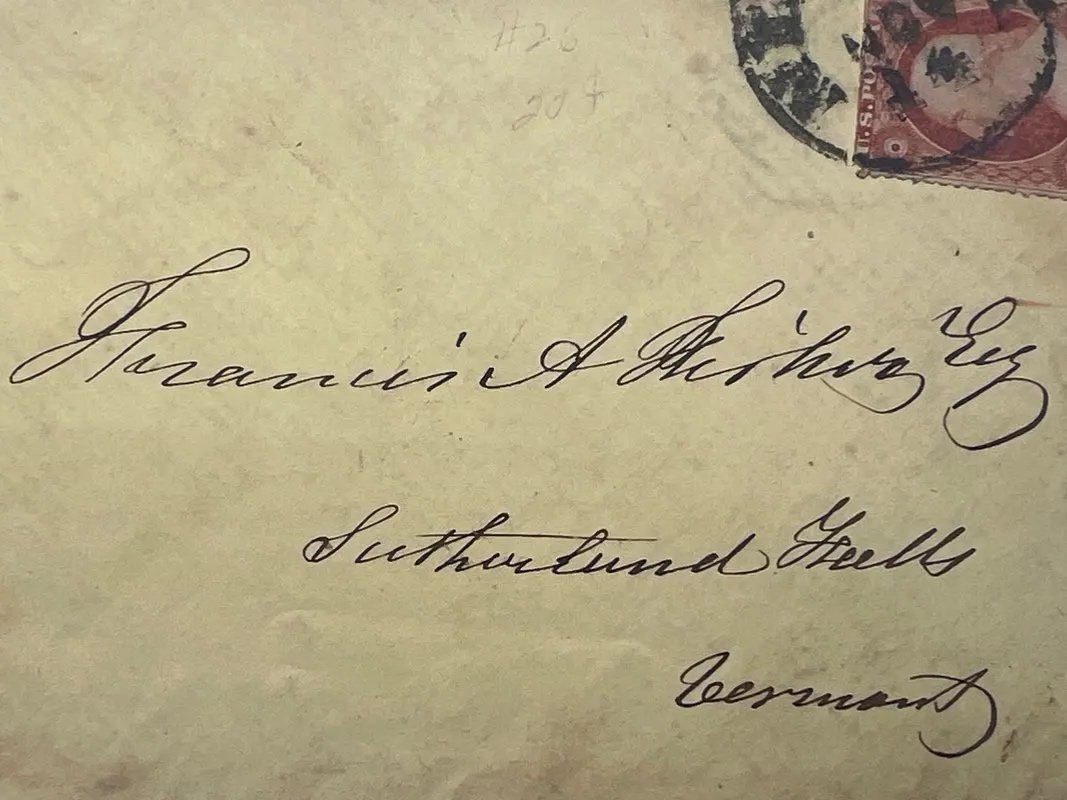 #26
20+
U.S. PO
Francis A Fisher Esq
Sutherland Falls
Vermont